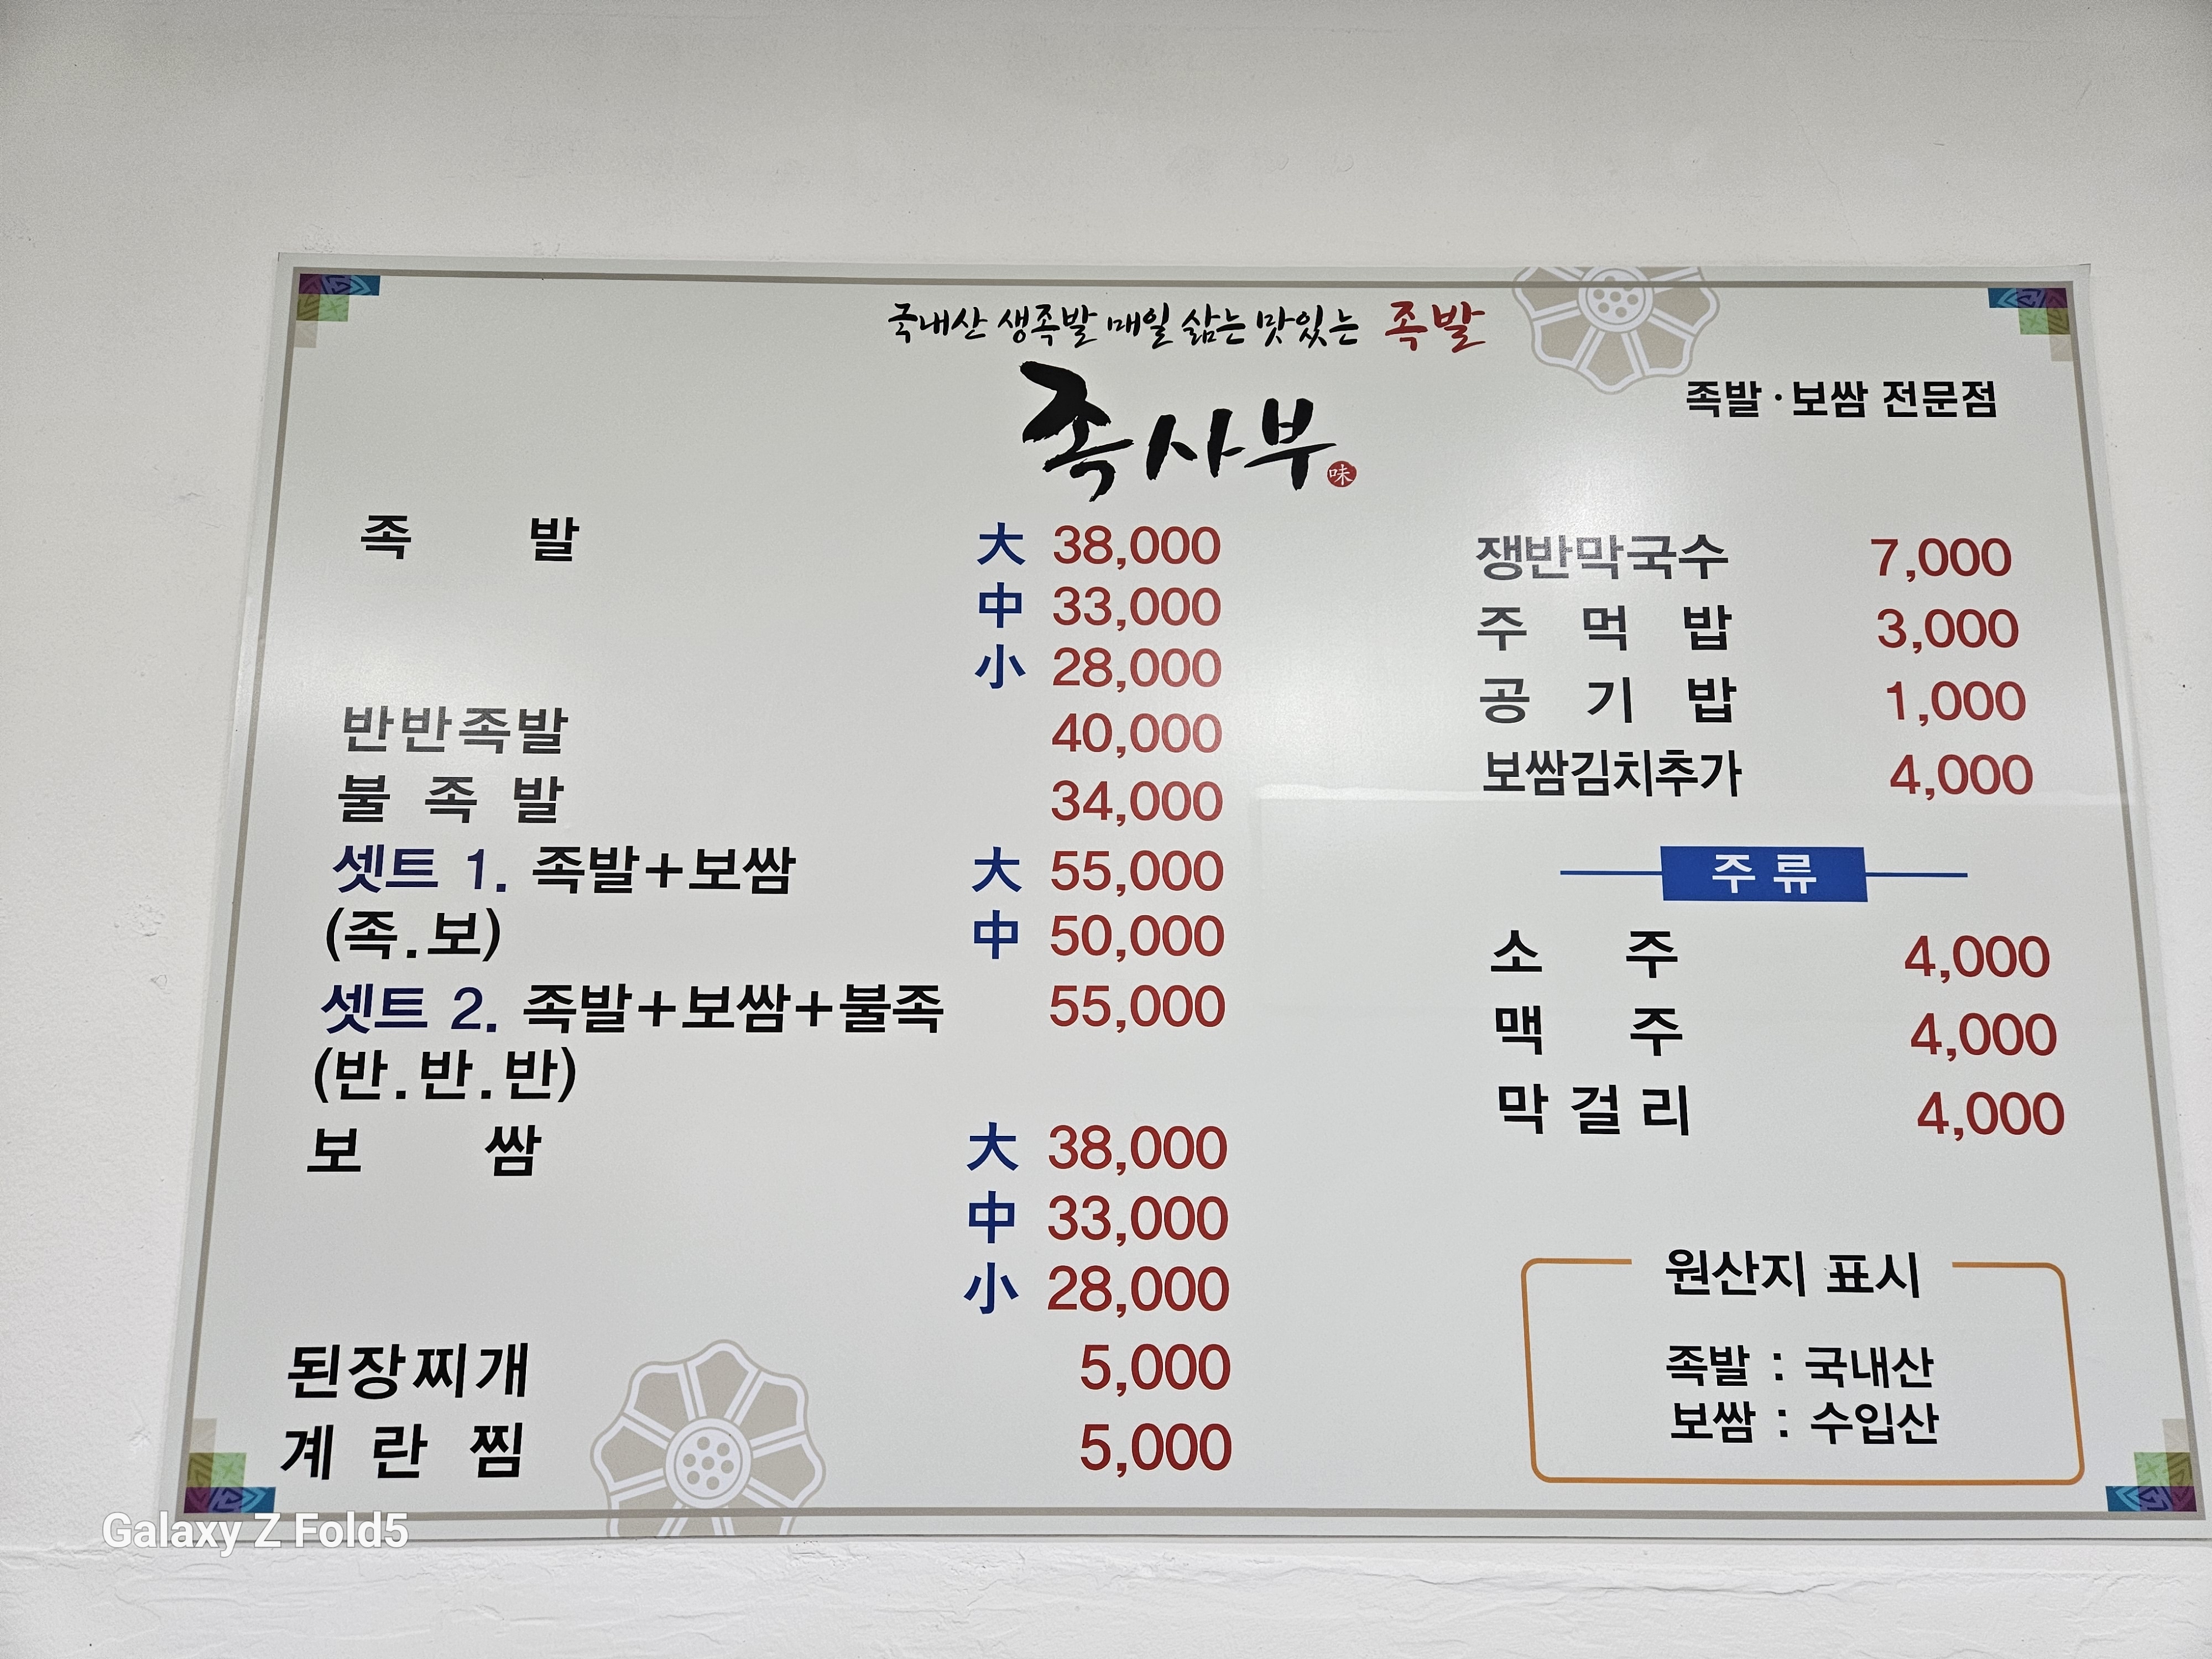 국내산 생족발 매일 삶는 맛있는 족발
족사부
味
족발·보쌈 전문점
족 발 大 38,000
中 33,000
小 28,000
반반족발 40,000
불 족 발 34,000
셋트 1. 족발+보쌈 大 55,000
(족.보) 中 50,000
셋트 2. 족발+보쌈+불족 55,000
(반.반.반)
보 쌈 大 38,000
中 33,000
小 28,000
된장찌개 5,000
계 란 찜 5,000
쟁반막국수 7,000
주 먹 밥 3,000
공 기 밥 1,000
보쌈김치추가 4,000
주 류
소 주 4,000
맥 주 4,000
막 걸 리 4,000
원산지 표시
족발 : 국내산
보쌈 : 수입산
Galaxy Z Fold5